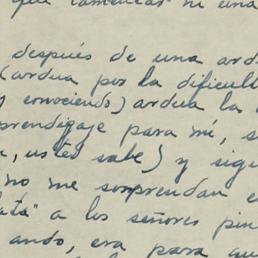 que lamentar ni una
después de una ard
(ardua por la dificult
y conociendo) ardua la
prendizaje para mí, s
, usted sabe) y sigu
no me sorprendan e
ata" a los señores pin
ando, era para que